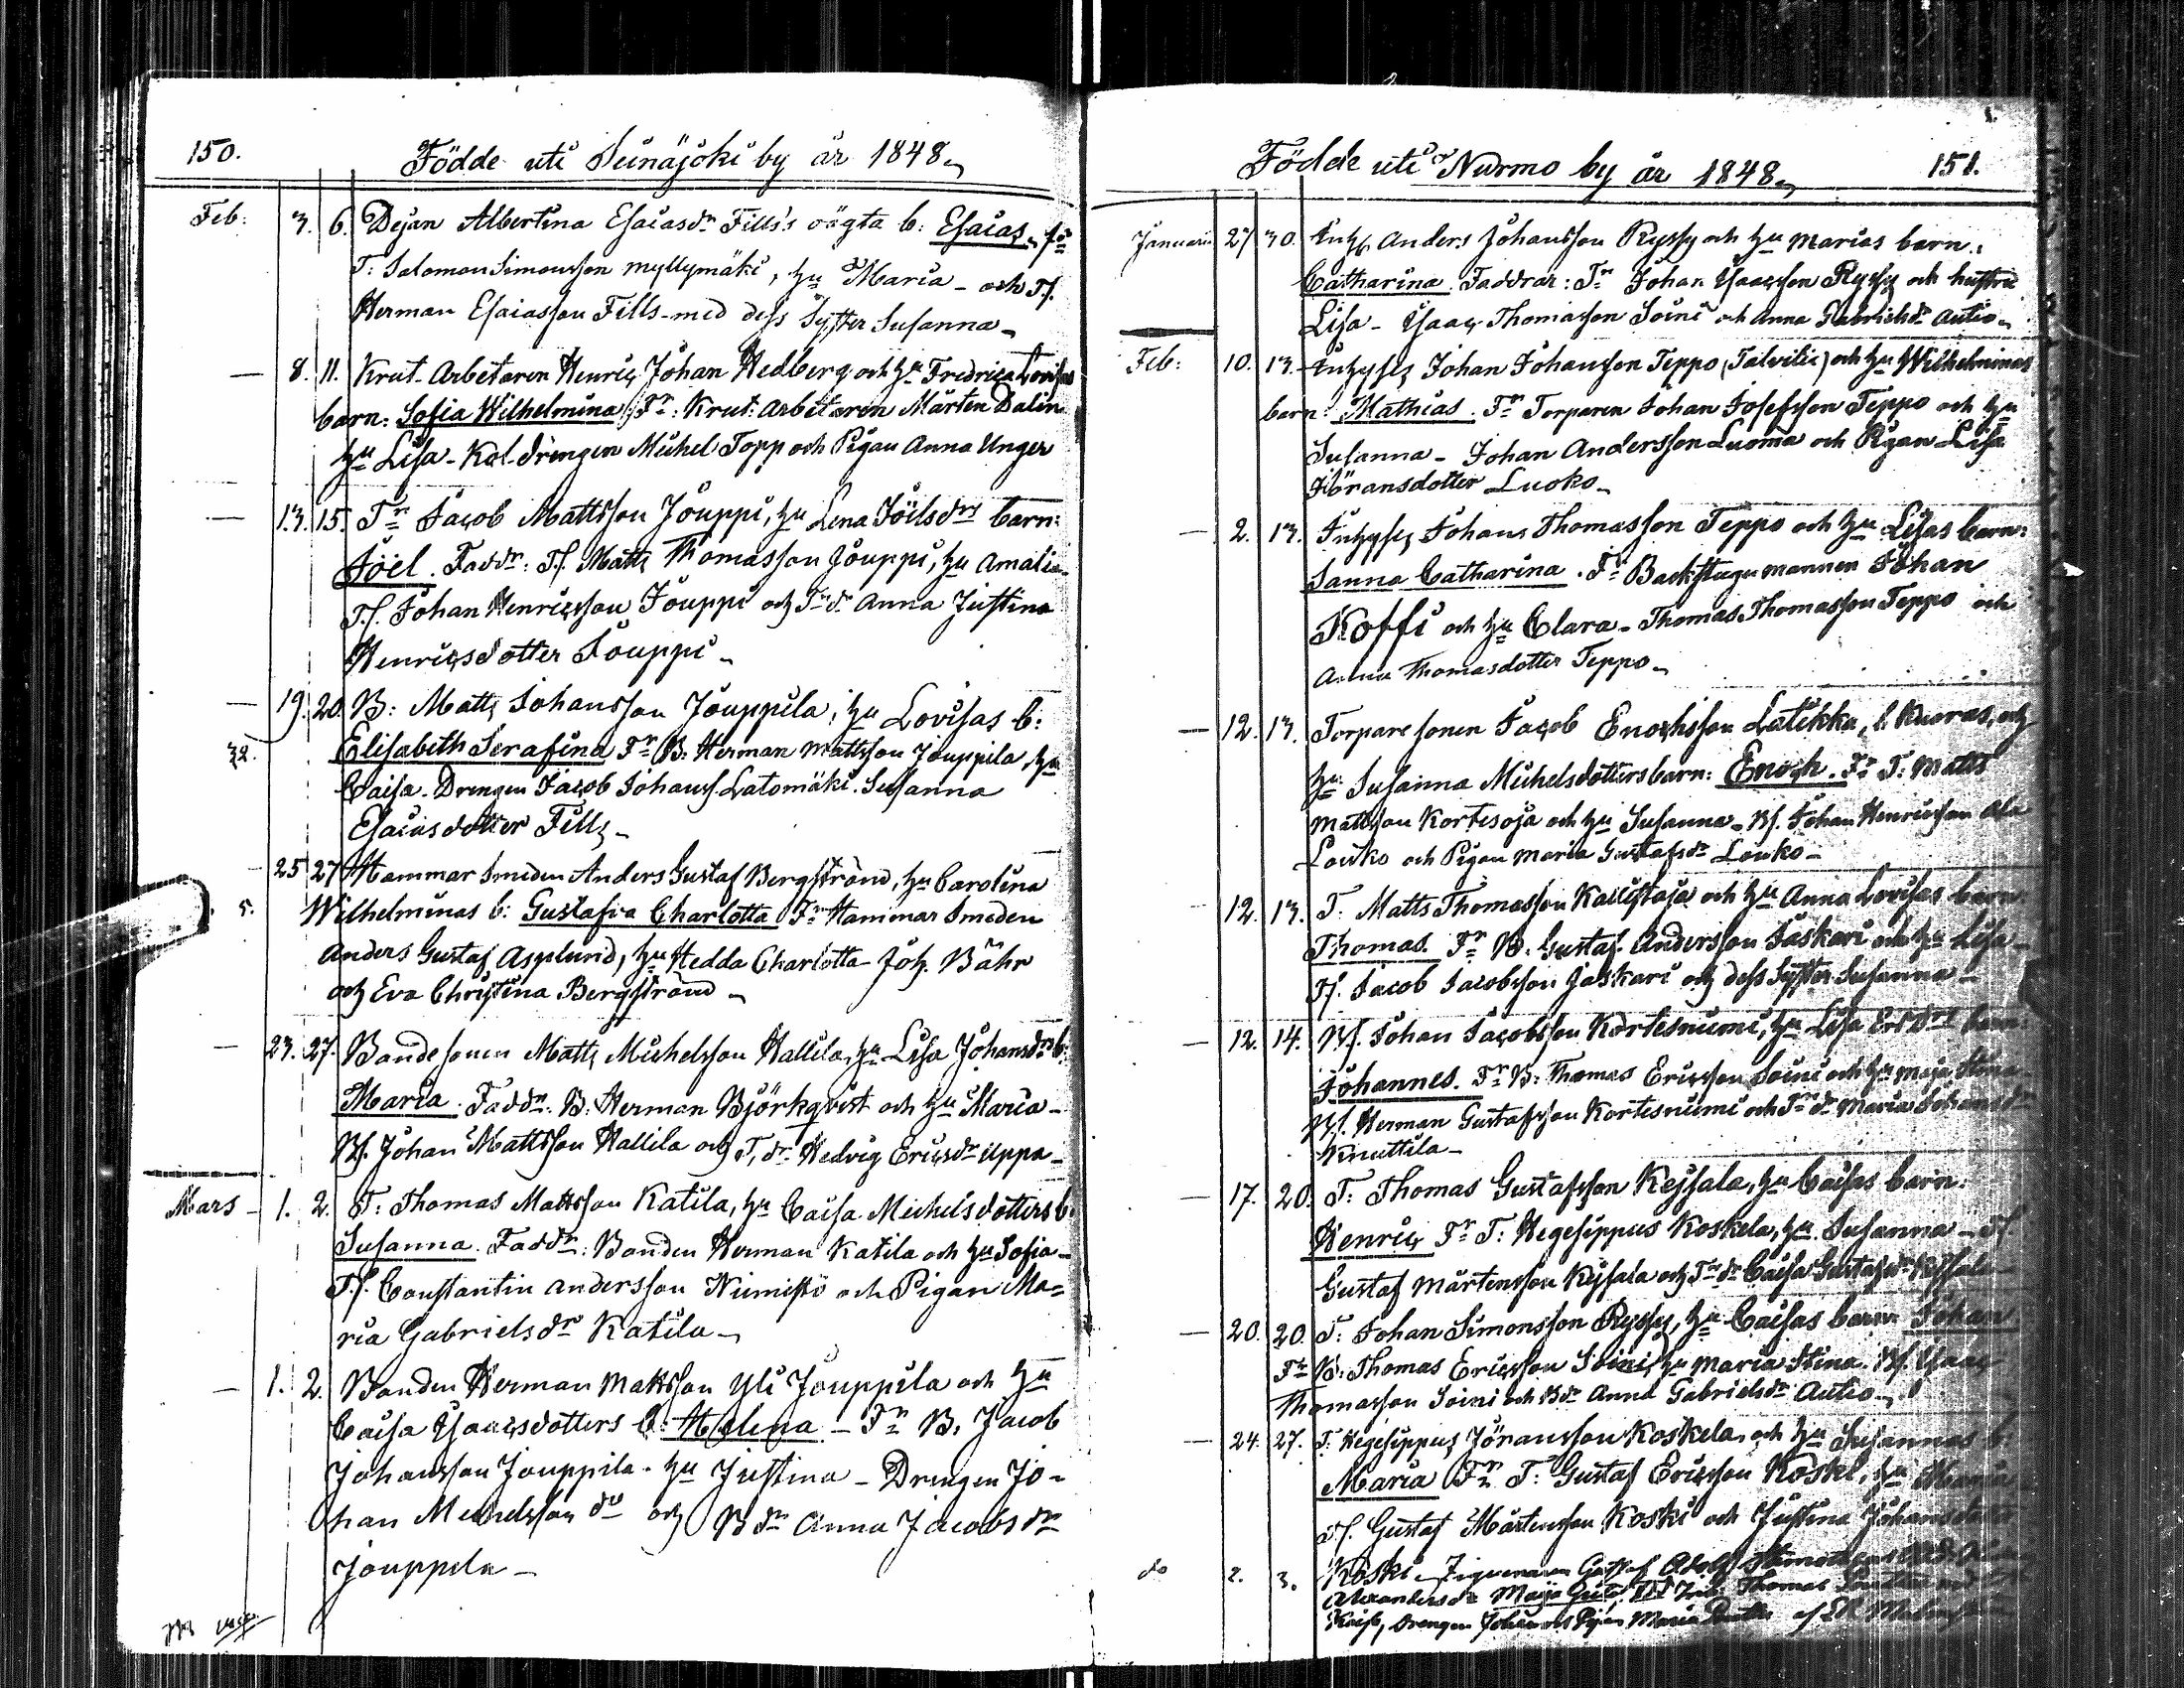 150.
Födde uti Seinäjoki by år 1848.
Feb: 3. 6. Pigan Albertina Esaiasdr Fills's oägta b: Esaias. Fr
T: Salomon Simonsson Myllymäki, hu Maria - och Tf.
Herman Esaiasson Fills - med dess Syster Susanna -
— 8. 11. Krut-Arbetaren Henric Johan Hedberg och hu Fredrica Lovisas
barn: Sofia Wilhelmina. Fr: Krut: arbetaren Mårten Dalin
hu Lisa - Kol-drengen Michel Topp och Pigan Anna Unger
— 13. 15. Tr Jacob Mattsson Jouppi, hu Lena Joëlsdrs barn:
Joël. Faddr: Tf. Matts Thomasson Jouppi, hu Amalia -
Tf. Johan Henricsson Jouppi och Trdr Anna Justina
Henricsdotter Jouppi -
— 19. 20. B: Matts Johansson Jouppila, hu Lovisas b:
32. Elisabeth Serafina Fr B: Herman Mattsson Jouppila, hu
Caisa - Drengen Jacob Johanss. Latomäki. Susanna
Esaiasdotter Fills -
— 25 27 Hammar Smeden Anders Gustaf Bergstrand, hu Carolina
5. Wilhelminas b: Gustafva Charlotta Fr Hammar Smeden
Anders Gustaf Asplund, hu Hedda Charlotta - Joh. Bähr
och Eva Christina Bergstrand -
— 23. 27. Bondesonen Matts Michelsson Hallila, hu Lisa Johansdrs b:
Maria. Faddr: B: Herman Björkqvist och hu Maria -
Bf. Johan Mattsson Hallila och T, dr Hedvig Ericsdr Uppa -
Mars - 1. 2. T: Thomas Mattsson Katila, hu Caisa Michelsdotters b.
Susanna. Faddr: Bonden Herman Katila och hu Sofia -
Tf. Constantin Andersson Niemistö och Pigan Ma=
ria Gabrielsdr Katila -
— 1. 2. Bonden Herman Mattsson Yli Jouppila och hu
Caisa Ysaacsdotters b: Helena - Fr B. Jacob
Johansson Jouppila - hu Justina - Drengen Jo-
han Michelsson do och Bdr Anna Jacobsdr
Jouppila -
Födde uti Nurmo by år 1848. 151.
Januari 27 30. Inhs Anders Johansson Ryssy och hu Marias barn:
Catharina. Faddrar: Tr Johan Ysaacsson Ryssy och hustru
Lisa - Ysaac Thomasson Soini och Anna Gabrielsdr Autio -
Feb: 10. 13. Inhyses Johan Johansson Teppo (Talvitie) och hu Wilhelminas
barn: Mathias. Fr Torparen Johan Josefsson Teppo och hu
Susanna - Johan Andersson Luoma och Pigan Lisa
Jöransdotter Luoko -
— 2. 13. Inhyses Johans Thomasson Teppo och hu Lisas barn:
Sanna Catharina. Fr Backstugumannen Johan
Koffi och hu Clara - Thomas Thomasson Teppo och
Anna Thomasdotter Teppo -
— 12. 13. Torparesonen Jacob Enochsson Latikka, l. Kuoras, och
hu Susanna Michelsdotters barn: Enoch. Fr T: Matts
Mattsson Kortesoja och hu Susanna - Bf. Johan Henricsson Ala
Louko och Pigan Maria Gustafsdr Louko -
12. 13. T: Matts Thomasson Kallistaja och hu Anna Lovisas barn
Thomas. Fr B. Gustaf Andersson Jaskari och hu Lisa -
Tf. Jacob Jacobsson Jaskari och dess Syster Susanna -
— 12. 14. Bf. Johan Jacobsson Kortesniemi, hu Lisa barn:
Johannes. Fr B: Thomas Ericsson Soini och hu Maja Stina
Bf. Herman Gustafsson Kortesniemi och Trdr Maria
Knuttila -
— 17. 20. T: Thomas Gustafsson Keisala, hu Caisas barn:
Henric Fr T: Hegesippus Koskela, hu Susanna - Tf.
Gustaf Mårtensson Keisala och Trdr Caisa Gustafsdr Keisala
— 20. 20. T: Johan Simonsson Ryssy, hu Caisas barn: Johan
Fr B: Thomas Ericsson Soini, hu Maria Stina. Bf. Ysaac
Thomasson Soini och Bdr Anna Gabrielsdr Autio -
— 24. 27. T: Hegesippus Jöransson Koskela och hu Susannas b:
Maria Fr T: Gustaf Ericsson Koski, hu Maria
Tf. Gustaf Mårtensson Koski och Justina Johansdotter
do 2. 3. Koski - Zigenaren Gustaf Adolf
Alexandersdr Maija Greta Thomas
Kaisa, Drengen Johan och Pigan Maria